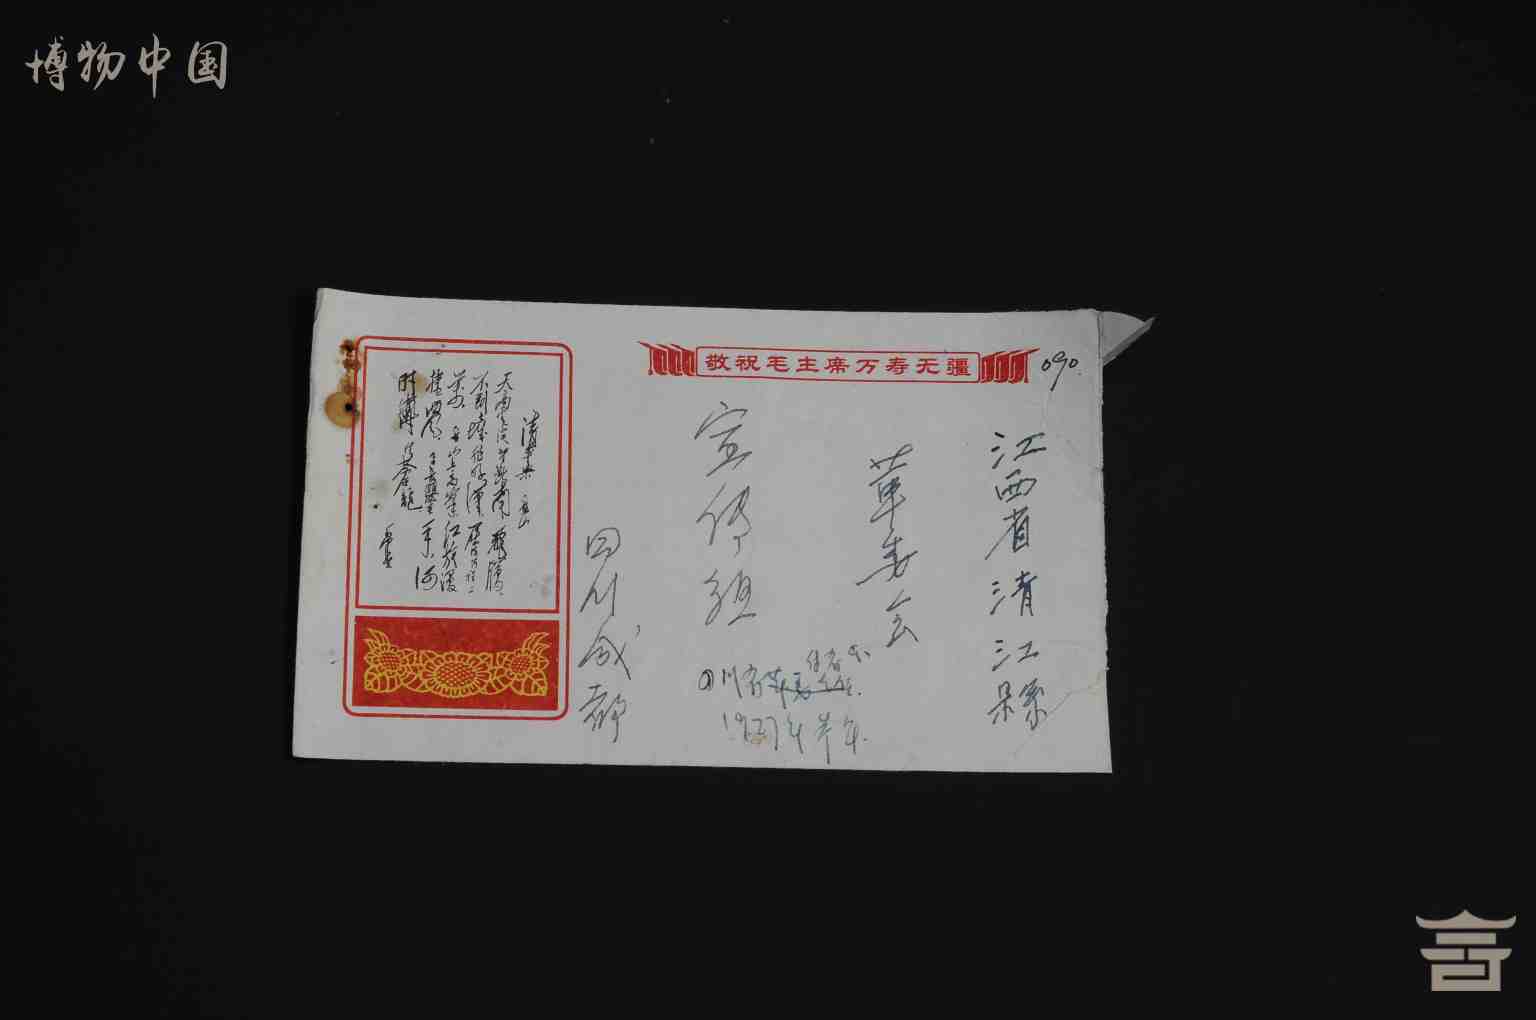 博物中国
敬祝毛主席万寿无疆
090.
江西省清江县
革委会
宣传组
四川成都
清平乐 六盘山
天高云淡 望断南飞雁
不到长城非好汉 屈指行程二
万 六盘山上高峰 红旗漫
卷西风 今日长缨在手 何
时缚住苍龙
毛泽东